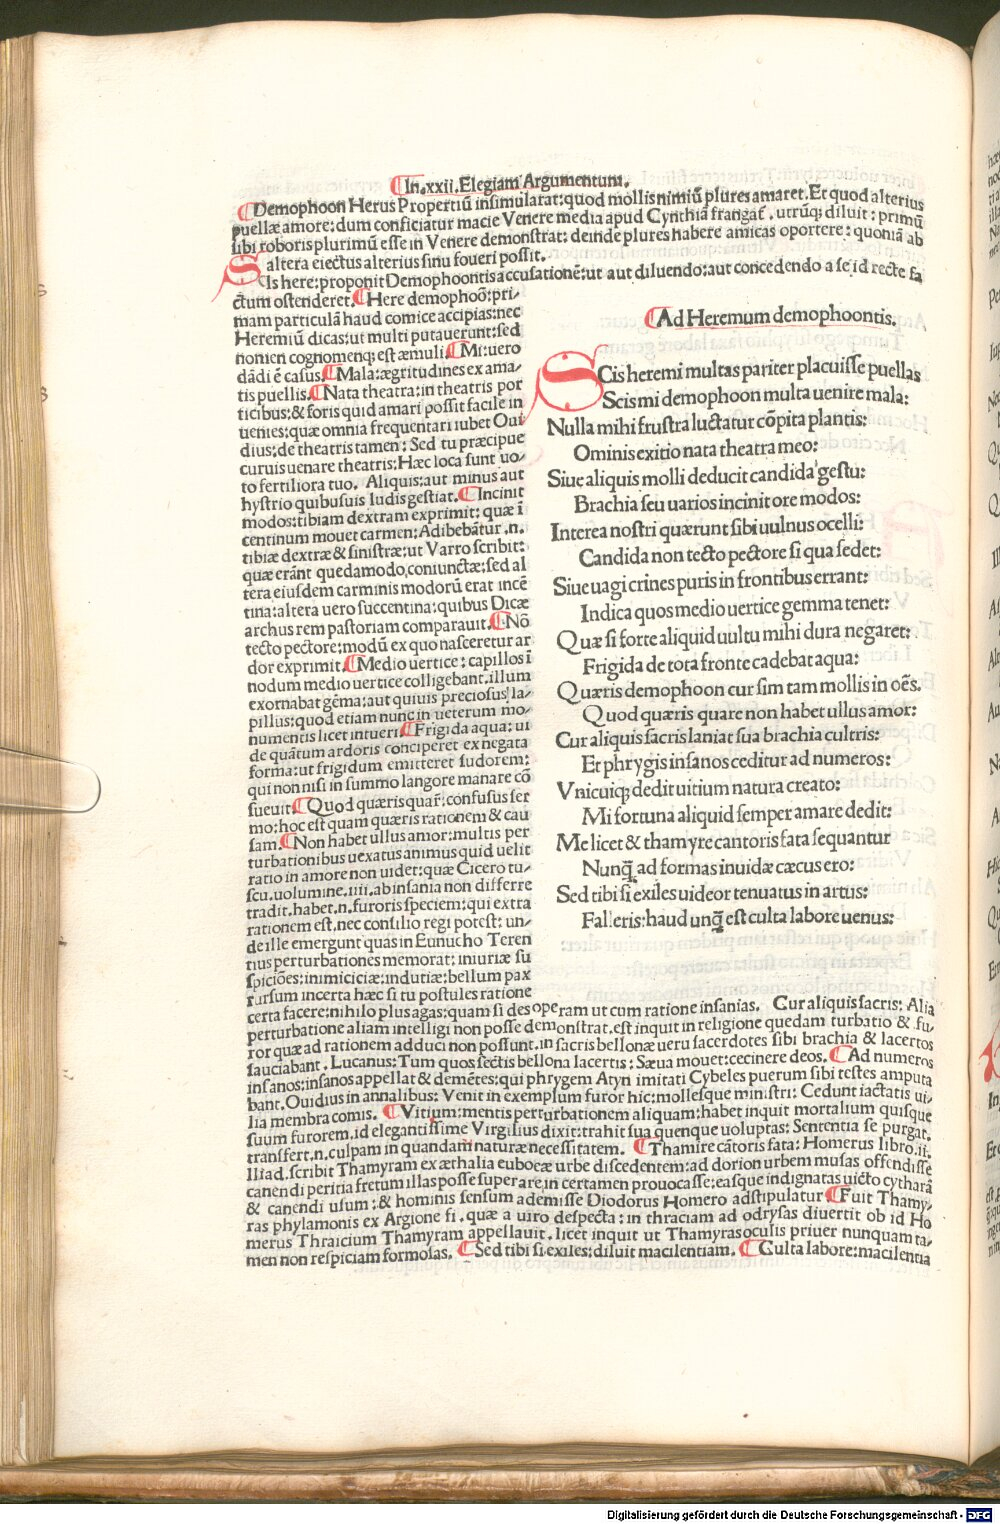 In.xxii.Elegiam Argumentum.
Demophoon Herus Propertiū insimularat:quod mollis nimiū plures amaret.Et quod alterius
puellæ amore:dum conficiatur macie Venere media apud Cynthiā frangat᷑.utrūq;diluit:primū
sibi roboris plurimū esse in Venere demonstrat:deinde plures habere amicas oportere:quoniā ab
altera eiectus alterius sinu foueri possit.
SCis here:proponit Demophoontis accusationē:ut aut diluendo:aut concedendo a se id recte fa
ctum ostenderet. Here demophoō:pri-
mam particulā haud comice accipias:nec
Heremiū dicas:ut multi putauerunt:sed
nonien cognomenq; est æmuli. Mi:uero
dādi ē casus. Mala:ægritudines ex ama-
tis puellis. Nata theatra:in theatris por
ticibus:& foris quid amari possit facile in
uenies:quæ omnia frequentari iubet Oui
dius:de theatris tamen: Sed tu præcipue
curuis uenare theatris:Hæc loca sunt uo-
to fertiliora tuo. Aliquis:aut minus aut
hystrio quibusuis ludis gestiat. Incinit
modos:tibiam dextram exprimit: quæ ī
centinum mouet carmen:Adibebātur .n.
tibiæ dextræ & sinistræ:ut Varro scribit:
quæ erāt quedamodo coniunctæ:sed al
tera eiusdem carminis modorū erat incē
tina:altera uero succentina:quibus Dicæ
archus rem pastoriam comparauit. Nō
tecto pectore:modū ex quo nasceretur ar
dor exprimit. Medio uertice: capillos ī
nodum medio uertice colligebant.illum
exornabat gēma:aut quiuis preciosus la-
pillus:quod etiam nunc in ueterum mo-
numentis licet intueri. Frigida aqua: ui
de quātum ardoris conciperet ex negata
forma:ut frigidum emitteret sudorem:
qui non nisi in summo langore manare cō
sueuit. Quod quæris quar᷑:confusus ser
mo:hoc est quam quæris rationem & cau
sam. Non habet ullus amor:multis per
turbationibus uexatus animus quid uelit
ratio in amore non uidet:quæ Cicero tu-
scu.uolumine.iiii.ab insania non differre
tradit.habet.n.furoris speciem:qui extra
rationem est.nec consilio regi potest: un-
de ille emergunt quas in Eunucho Teren
tius perturbationes memorat: iniuriæ su
spiciōes:inimiciciæ:indutiæ:bellum pax
rursum incerta hæc si tu postules ratione
certa facere:nihilo plus agas:quam si des operam ut cum ratione insanias. Cur aliquis sacris: Alia
perturbatione aliam intelligi non posse demonstrat.est inquit in religione quedam turbatio & fu-
ror quæ ad rationem adduci non possunt.in sacris bellonæ ueru sacerdotes sibi brachia & lacertos
sauciabant. Lucanus:Tum quos sectis bellona lacertis: Sæua mouet:cecinere deos. Ad numeros
insanos:insanos appellat & demētes:qui phrygem Atyn imitati Cybeles puerum sibi testes amputa
bant.Ouidius in annalibus: Venit in exemplum furor hic:mollesque ministri: Cedunt iactatis ui-
lia membra comis. Vitium:mentis perturbationem aliquam:habet inquit mortalium quisque
suum furorem.id elegantissime Virgilius dixit:trahit sua quenque uoluptas: Sententia se purgat.
transfert.n.culpam in quandam naturæ necessitatem. Thamire cātoris fata: Homerus libro.ii.
Iliad.scribit Thamyram ex æthalia euboeæ urbe discedentem:ad dorion urbem musas offendisse
canendi peritia fretum illas posse superare.in certamen prouocasse:easque indignatas uicto cytharā
& canendi usum:& hominis sensum ademisse Diodorus Homero adstipulatur Fuit Thamy-
ras phylamonis ex Argione fi. quæ a uiro despecta: in thraciam ad odrysas diuertit ob id Ho
merus Thraicium Thamyram appellauit. licet inquit ut Thamyras oculis priuer nunquam ta-
men non respiciam formosas. Sed tibi si exiles:diluit macilentiam. Culta labore:macilentia
Ad Heremum demophoontis.
SCis heremi multas pariter placuisse puellas
Scis mi demophoon multa uenire mala:
Nulla mihi frustra luctatur cōpita plantis:
Ominis exitio nata theatra meo:
Siue aliquis molli deducit candida gestu:
Brachia seu uarios incinit ore modos:
Interea nostri quærunt sibi uulnus ocelli:
Candida non tecto pectore si qua sedet:
Siue uagi crines puris in frontibus errant:
Indica quos medio uertice gemma tenet:
Quæ si forte aliquid uultu mihi dura negaret:
Frigida de tota fronte cadebat aqua:
Quæris demophoon cur sim tam mollis in oēs.
Quod quæris quare non habet ullus amor:
Cur aliquis sacris laniat sua brachia cultris:
Et phrygis insanos ceditur ad numeros:
Vnicuiq; dedit uitium natura creato:
Mi fortuna aliquid semper amare dedit:
Me licet & thamyre cantoris fata sequantur
Nunq̄ ad formas inuidæ cæcus ero:
Sed tibi si exiles uideor tenuatus in artus:
Falleris:haud unq̄ est culta labore uenus:
Digitalisierung gefördert durch die Deutsche Forschungsgemeinschaft - DFG